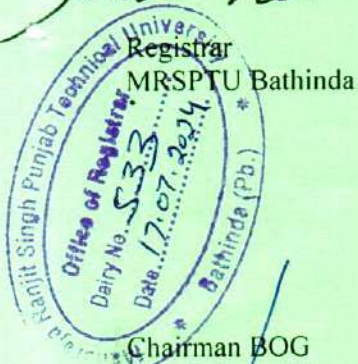 Registrar
MRSPTU Bathinda
Ranjit Singh Punjab Technical University
Office of Registrar
Dairy No. 533
Date 17.07.2024
Bathinda (Pb.)
Chairman BOG